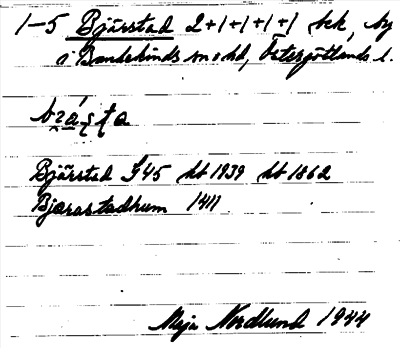 1-5 Bjärstad 2+1+1+1+1 hk, by
i Bankekinds sn o hd, Östergötlands l.
Bjärstad G45 hbt 1939 hbt 1862
Bjærastadhum 1411
Meja Nordlund 1944